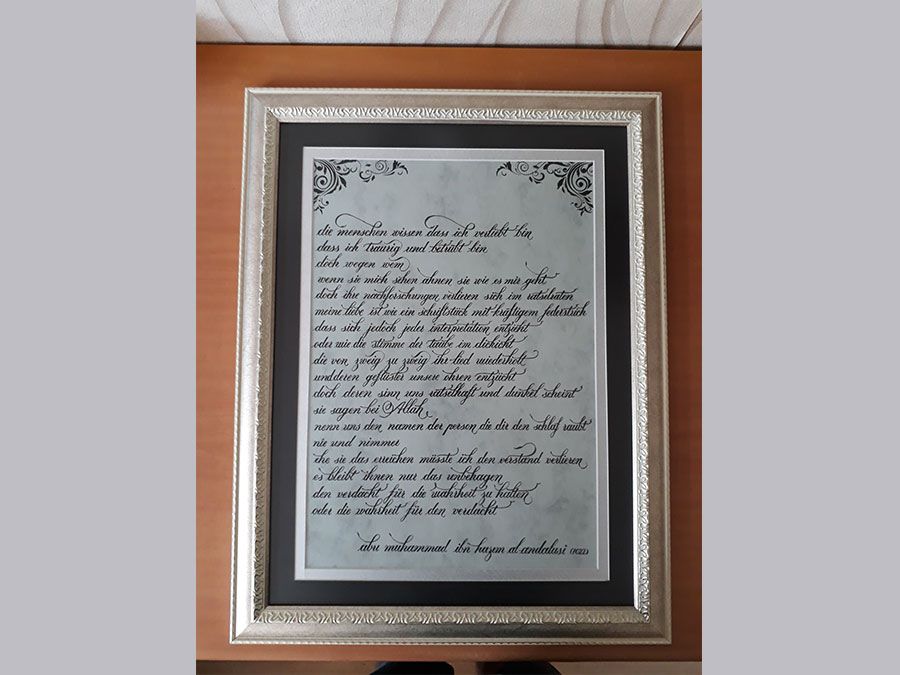 die menschen wissen dass ich verliebt bin
dass ich traurig und betrübt bin
doch wegen wem
wenn sie mich sehen ahnen sie wie es mir geht
doch ihre nachforschungen verlieren sich im rätselraten
meine liebe ist wie ein schriftstück mit kräftigem federstrich
dass sich jedoch jeder interpretation entzieht
oder wie die stimme der taube im dickicht
die von zweig zu zweig ihr lied wiederholt
und deren geflüster unsere ohren entzückt
doch deren sinn uns rätselhaft und dunkel scheint
sie sagen bei Allah
nenn uns den namen der person die dir den schlaf raubt
nie und nimmer
ehe sie das erreichen müsste ich den verstand verlieren
es bleibt ihnen nur das unbehagen
den verdacht für die wahrheit zu halten
oder die wahrheit für den verdacht
abu muhammad ibn hazem al-andalusi (1022)